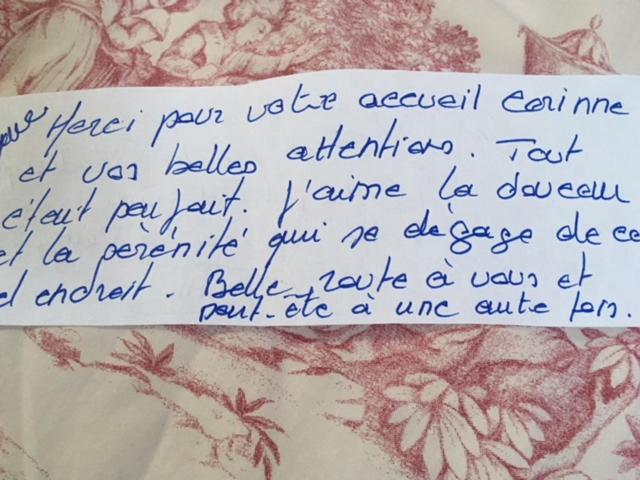 Merci pour votre accueil Corinne
et vos belles attentions. Tout
était parfait. J'aime la douceur
et la pérénité qui se dégage de ce
endroit. Belle route à vous et
peut-être à une autre fois.